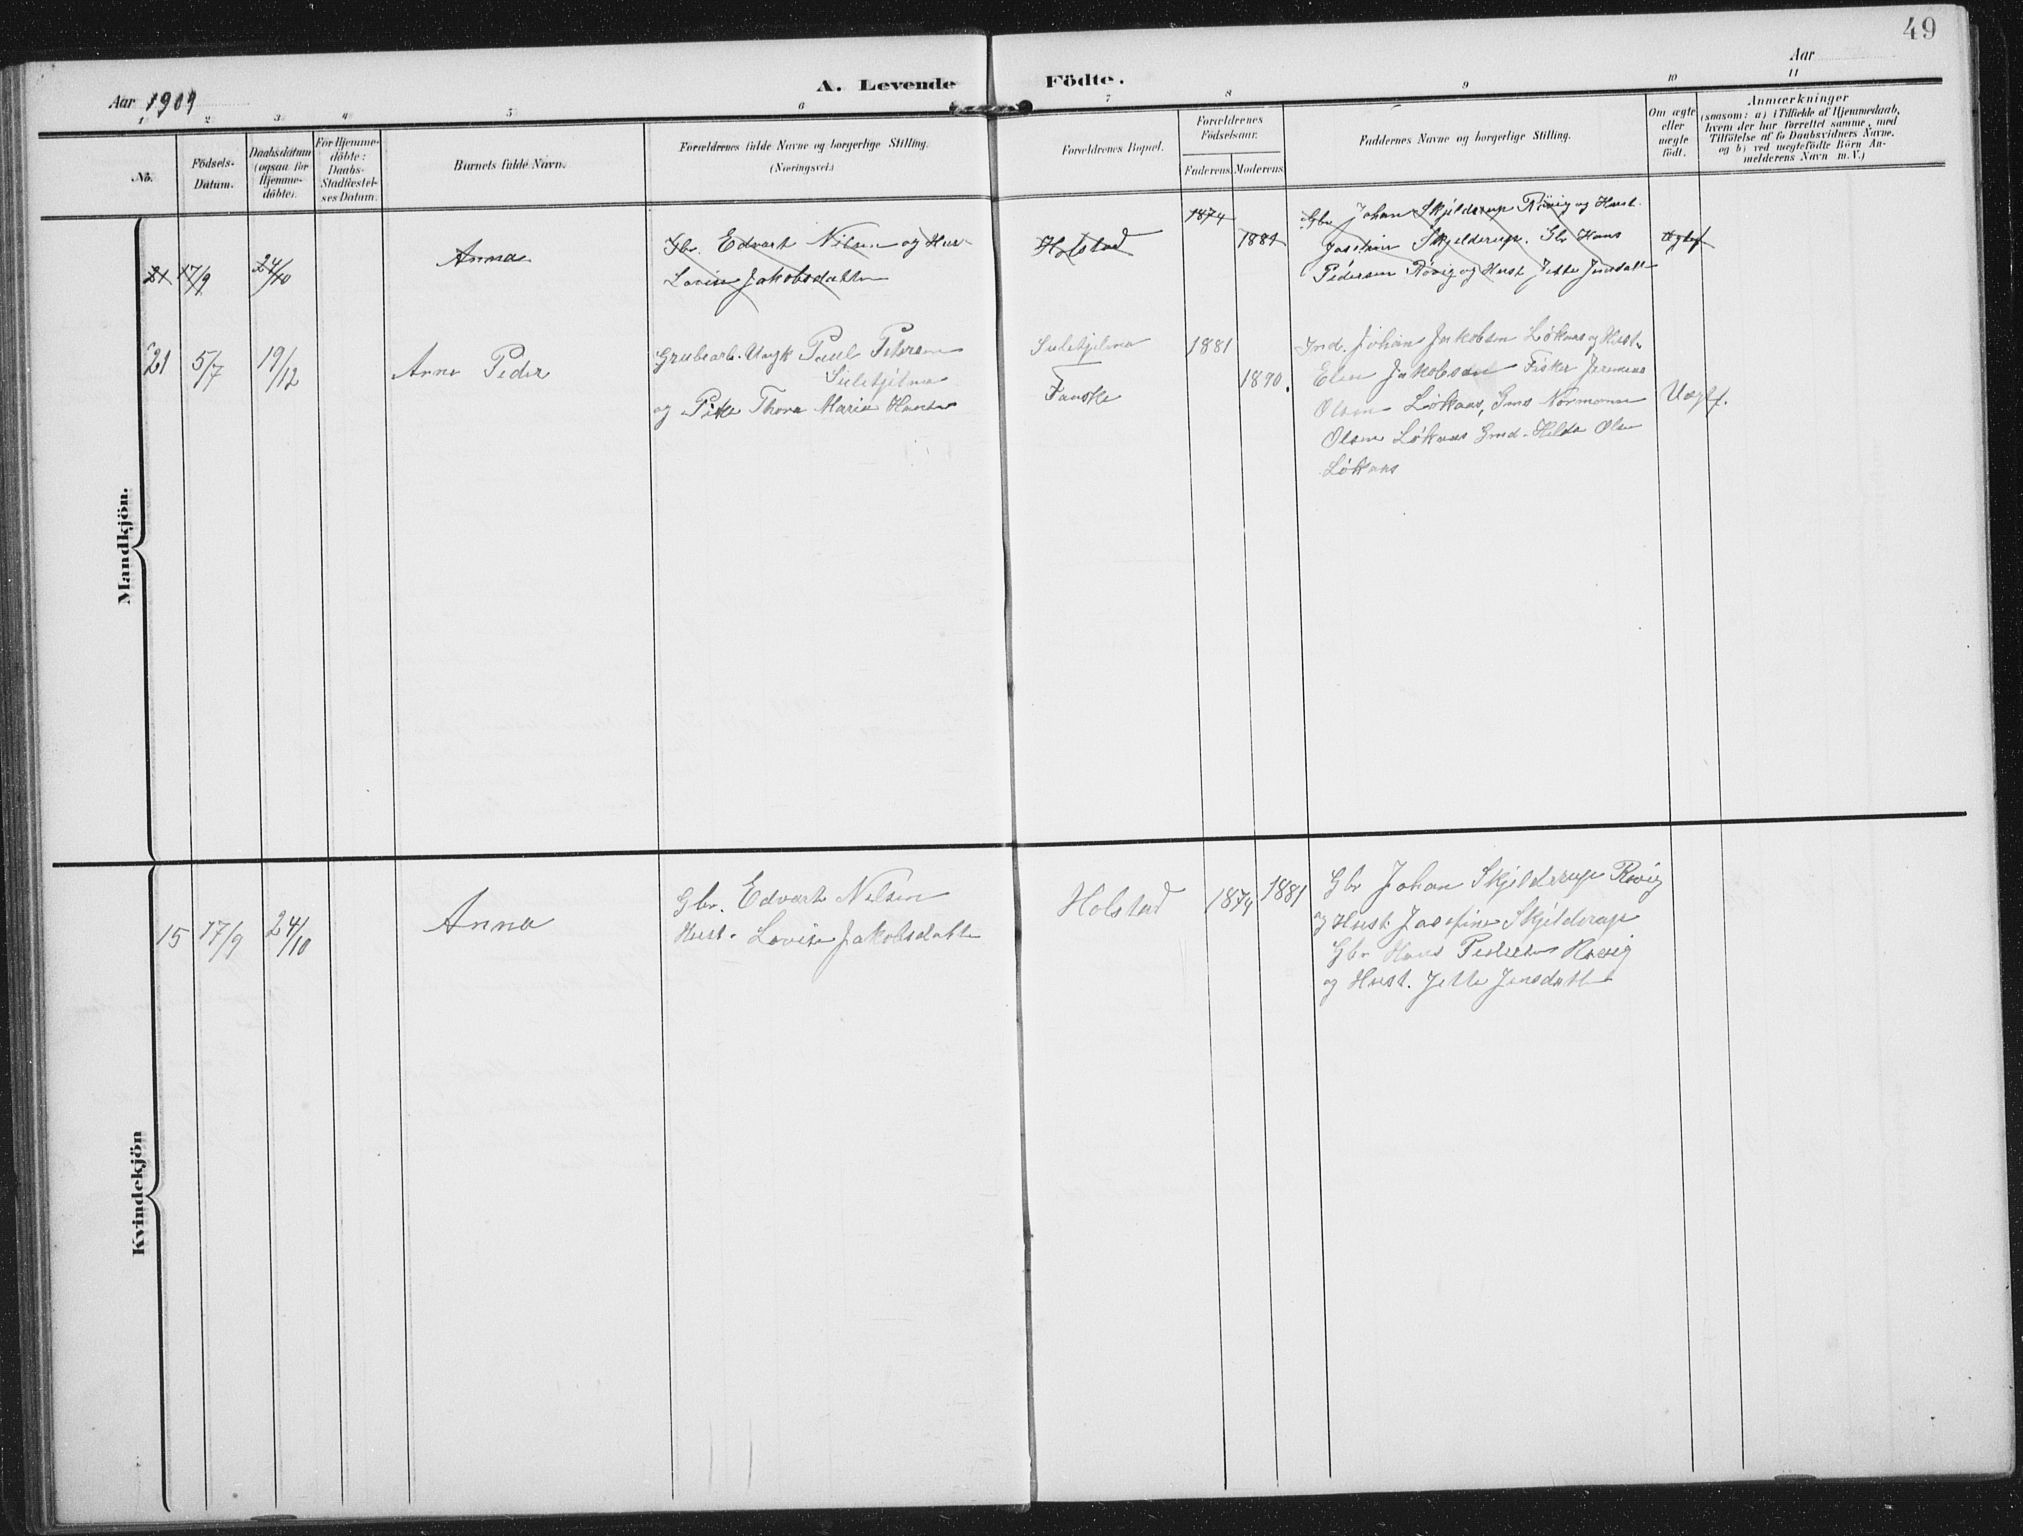 49
Aar 1909
A. Levende Födte.
Aar
1 2 3 4 5 6 7 8 9 10 11
No.
Födsels-
Datum.
Daabsdatum
(ogsaa for
Hjemme-
döbte).
For Hjemme-
döbte:
Daabs-
Stadfæstel-
ses Datum.
Barnets fulde Navn.
Forældrenes fulde Navne og borgerlige Stilling.
(Næringsvei.)
Forældrenes Bopæl.
Forældrenes
Födselsaar.
Faderens Moderens
Faddernes Navne og borgerlige Stilling.
Om ægte
eller
uægte
födt.
Anmærkninger
(saasom: a) i Tilfælde af Hjemmedaab,
hvem der har forrettet samme, med
Tilföielse af to Daabsvidners Navne.
og b) ved uægtefödte Börn An-
melderens Navn m. V.)
Mandkjön.
21 17/9 24/10 Anna
Gbr. Edvart Nilsen og Hus-
Lovise Jakobsdatter
Holstad
1874
1881
Gbr Johan Skjelderup Rövig og Hust.
Josefine Skjelderup. Gbr Hans
Pedersen Rövig og Hust Jette Jensdatt
Ægtef
21 5/7 19/12 Arne Peder
Grubearb. Ungk Paul Petersen
Sulitjelma
og Pike Thora Marie Hansen
Sulitjelma
Fauske
1881
1890.
Ind. Johan Jakobsen Løkaas og Hust.
Elen Jakobsen Fisker Jeremias
Olsen Løkaas, Gms Normann
Olsen Løkaas Gmd. Hilda Olsen
Løkaas
Uægtf.
Kvindekjön
15 17/9 24/10 Anna
Gbr. Edvart Nilsen
Hust. Lovise Jakobsdatter
Holstad 1874 1881
Gbr Johan Skjelderup Røvig
og Hust. Josefine Skjelderup
Gbr Hans Pedersen Røvig
og Hust. Jette Jensdatter